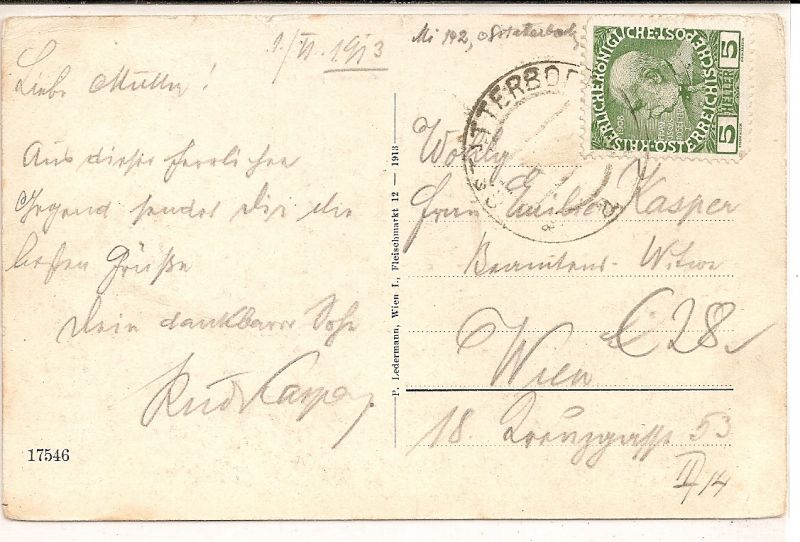 1/VI 1913
Mi 142,
Liebe Mutter!
Aus dieser herrlichen
Gegend sendet Dir die
besten Grüße
Dein dankbarer Sohn
Rud Kasper
17546
P. Ledermann, Wien I., Fleischmarkt 12 — 1913
TTERBO
KAISERLICHE KÖNIGLICHE ÖSTERREICHISCHE POST
5 HELLER 5
1908
Wohlg
Frau Emilie Kasper
Beamtens-Witwe
Wien
€ 28
18. Kreuzgasse 53
II/14